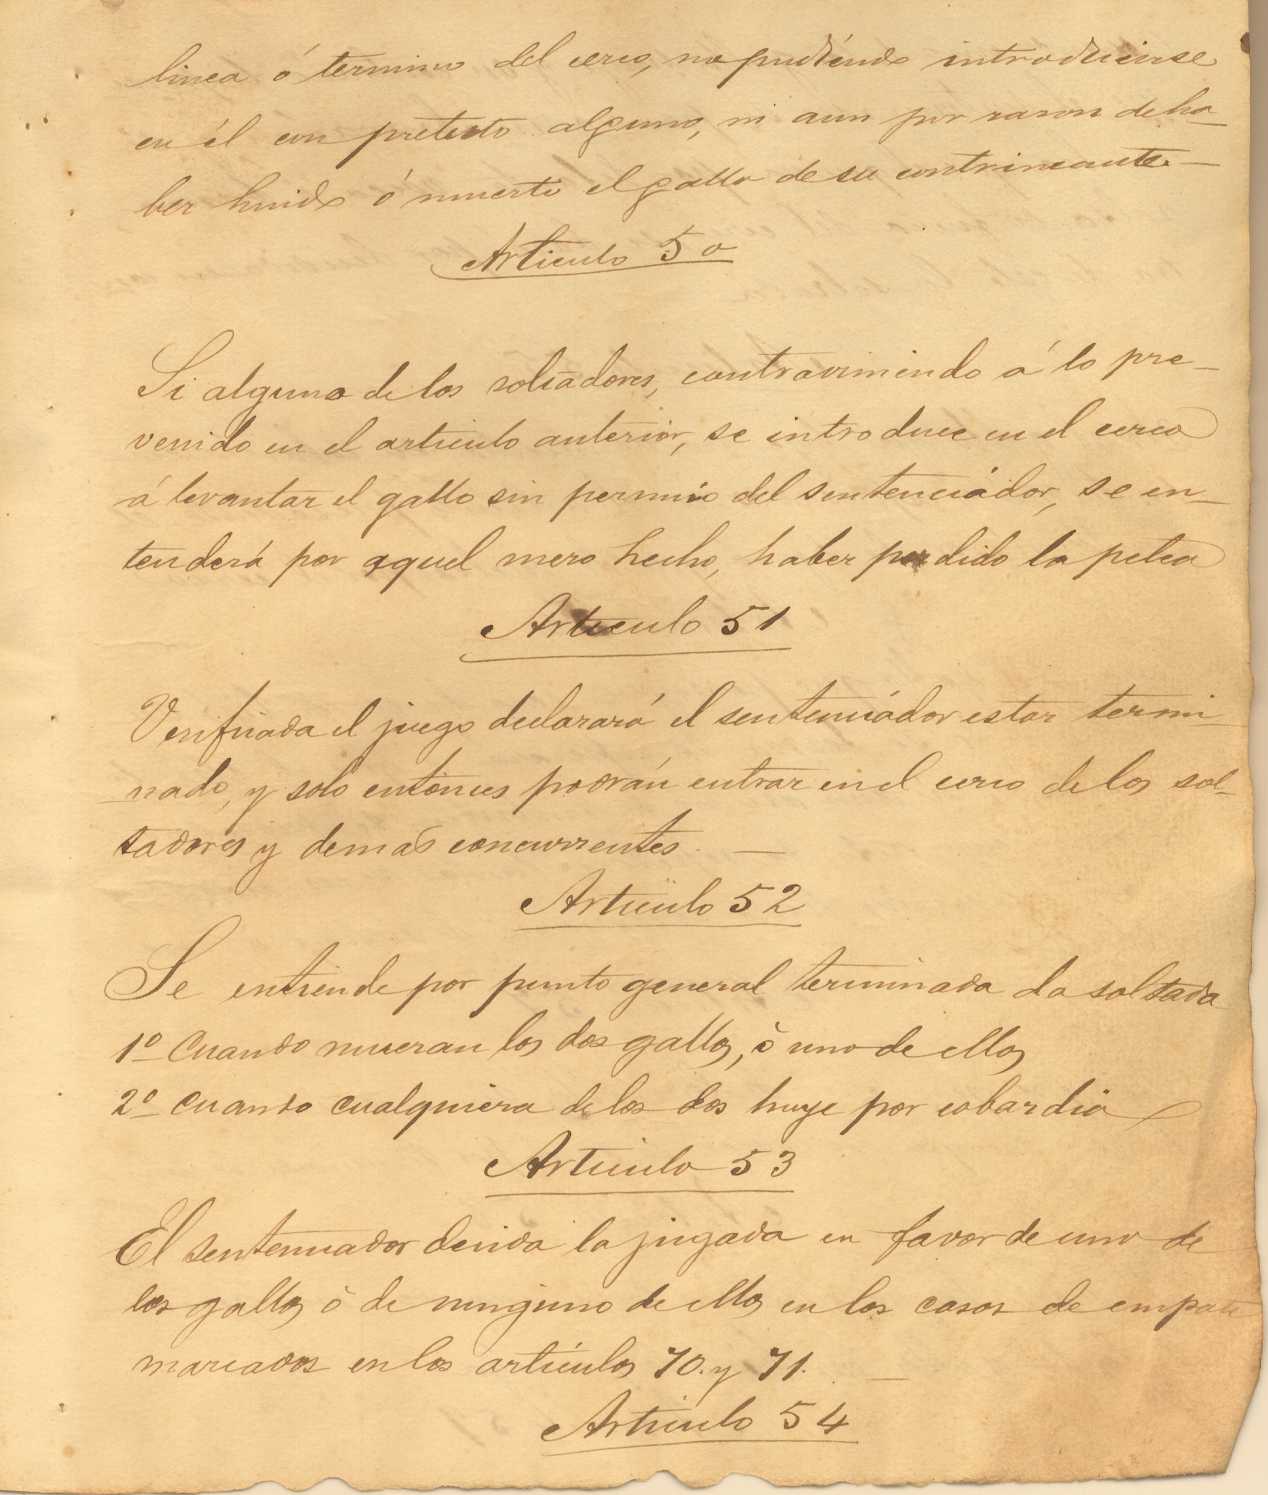 linea ó termino del cerco, no pudiéndo introducirse
en él con pretesto alguno, ni aun por razon de ha_
ber huido ó muerto el gallo de su contrincante. —
Articulo 50
Si alguno de los soltadores, contraviniendo á lo pre_
venido en el articulo anterior, se introduce en el cerco
á levantar el gallo sin permiso del sentenciador, se en_
tenderá por aquel mero hecho, haber perdido la pelea
Articulo 51
Verificada el juego declarará el sentenciador estar termi
nado, y solo entónces podrán entrar en el cerco de los sol_
tadores y demas concurrentes. —
Articulo 52
Se entiende por punto general terminada la soltada
1º Cuando mueran los dos gallos, ò uno de ellos
2º Cuando cualquiera de los dos huye por cobardia
Articulo 53
El sentenciador decida la jugada en favor de uno de
los gallos ò de ninguno de ellos en los casos de empate
marcados en los artículos 70. y 71. —
Articulo 54